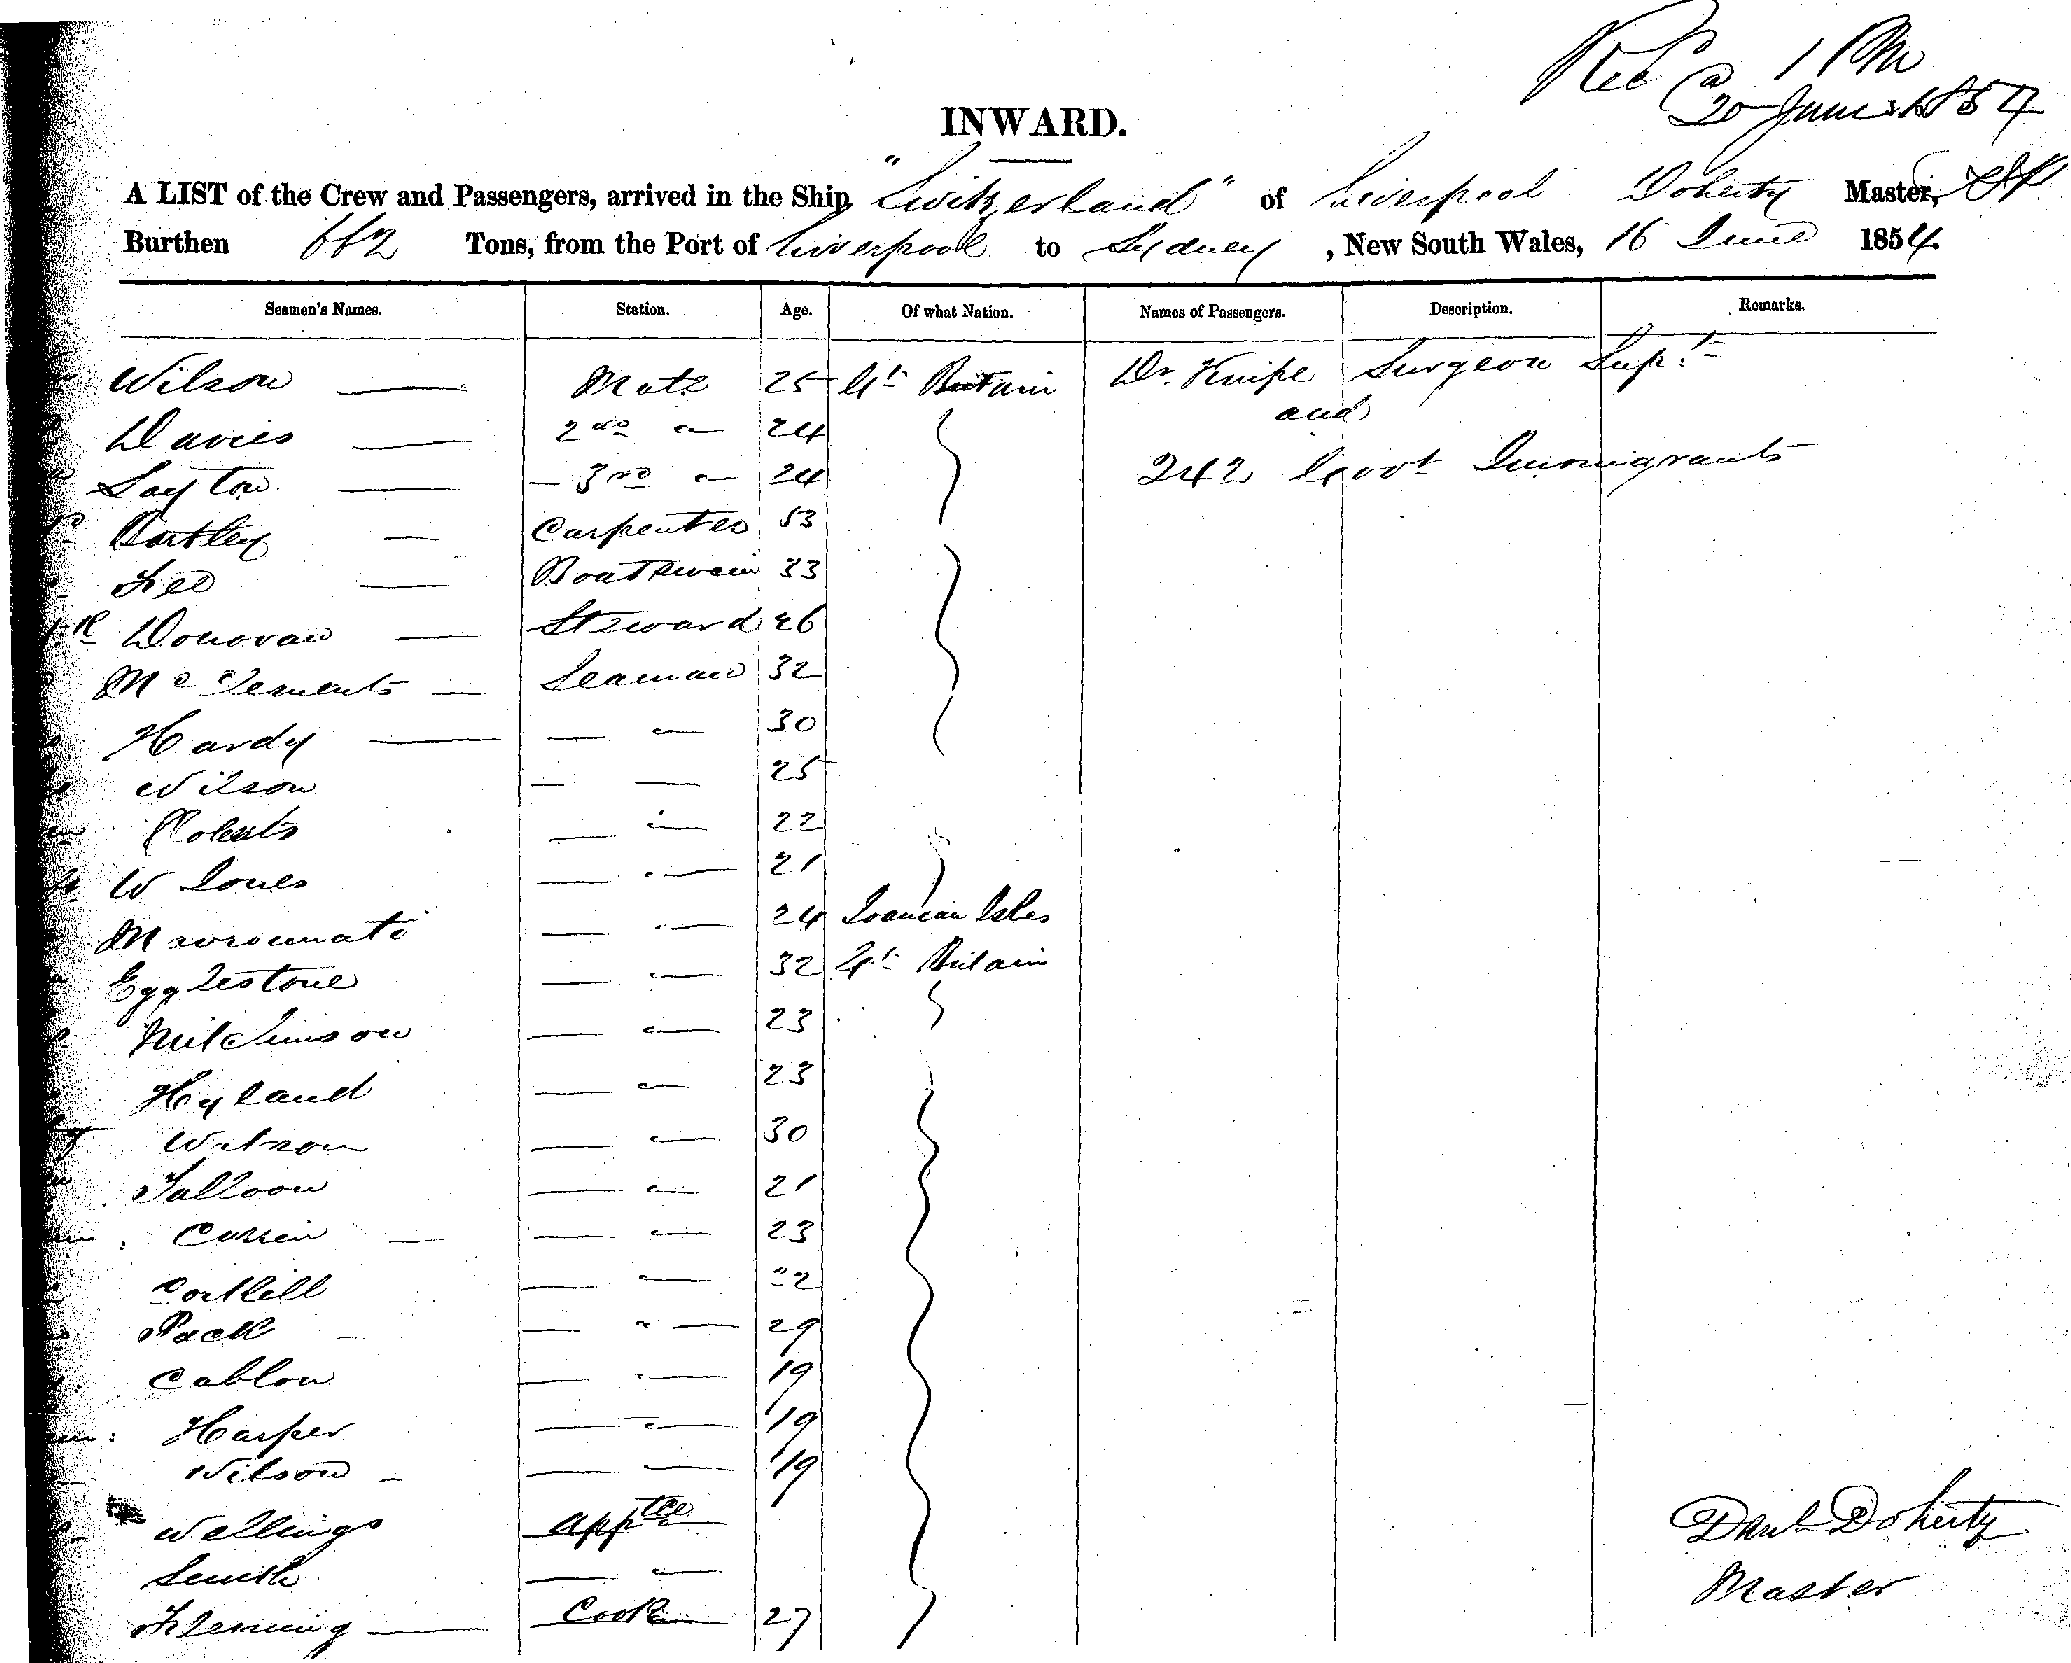 Rec 1 PM
20 June 1854
INWARD.
A LIST of the Crew and Passengers, arrived in the Ship "Switzerland" of Liverpool Doherty Master,
Burthen 662 Tons, from the Port of Liverpool to Sydney, New South Wales, 16 June 1854
Seamen's Names. Station. Age. Of what Nation. Names of Passengers. Description. Remarks.
Wilson — Mate 25 Gt Britain Dr. Knipe Surgeon Supt
and
Davies — 2nd " — 24
Layton — — 3rd " — 24 242 Govt Immigrants
Bartley — Carpenter 53
Lee — Boatswain 33
Donovan — Steward 26
Mc — Seaman 32
Hardy — — " — 30
Wilson — — 25
Roberts — " — 22
W Jones — " — 21
— " — 24 Ionian Isles
Egglestone — " — 32 Gt Britain
Mitchinson — " — 23
Hyland — " — 23
Watson — " — 30
Falloon — " — 21
Currin — — " — 23
Corkill — " — 22
Pack — " — 29
Cablon — " — 19
Harper — " — 19
Wilson — — " — 19
Wellings Apptce
Smith — " —
Fleming — Cook 27
Danl Doherty
Master